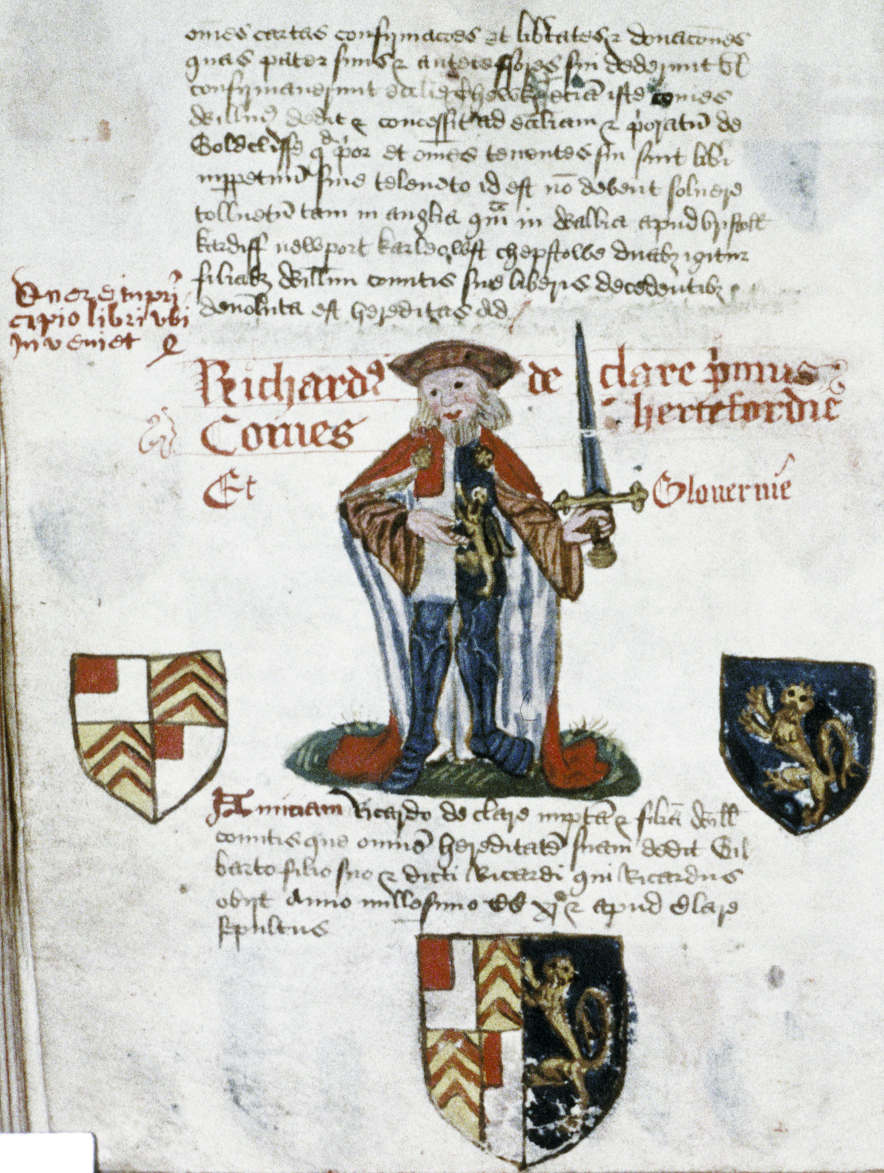 om̄es cartas confirmac̄oes et lib̄tates ⁊ donac̄ones
quas pater suus ⁊ antecessores sui dederunt vl̄
confirmaverunt iste comes
Will̄us dedit ⁊ concessit ad ecc̄liam ⁊ p̄oratū de
Goldcliffe q̄d p̄or et om̄es tenentes sui sint lib̄i
imppetuū sine teloneto id est nō debent solvere
tollnetū tam in anglia q̄m in Wallia apud bristoll
kardiff newport karleon chepstowe duab⁊ igitur
filiab⁊ Will̄mi comitis sine liberis decedentib⁊
devoluta est hereditas ad
Quere in pri
cipio libri vbi
Inveniet
Richardꝰ de clare p̄mus
Comes hertefordie
Et Glouernie
Amiciam Ricardo de clare nuptā ⁊ filiā Will̄
comitis que omnē hereditatē suam dedit Gil
barto filio suo ⁊ dicti Ricardi qui Ricardus
obijt Anno millesimo CC xj° ⁊ apud Clare
sepultus